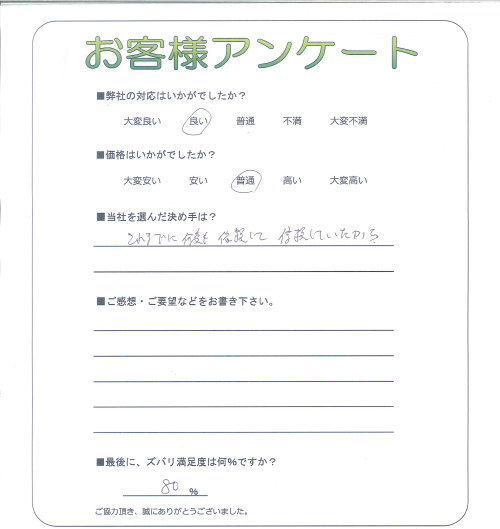 お客様アンケート
■弊社の対応はいかがでしたか？
大変良い 良い 普通 不満 大変不満
■価格はいかがでしたか？
大変安い 安い 普通 高い 大変高い
■当社を選んだ決め手は？
これまでに何度も 依頼して 信頼していたから
■ご感想・ご要望などをお書き下さい。
■最後に、ズバリ満足度は何%ですか？
80 %
ご協力頂き、誠にありがとうございました。